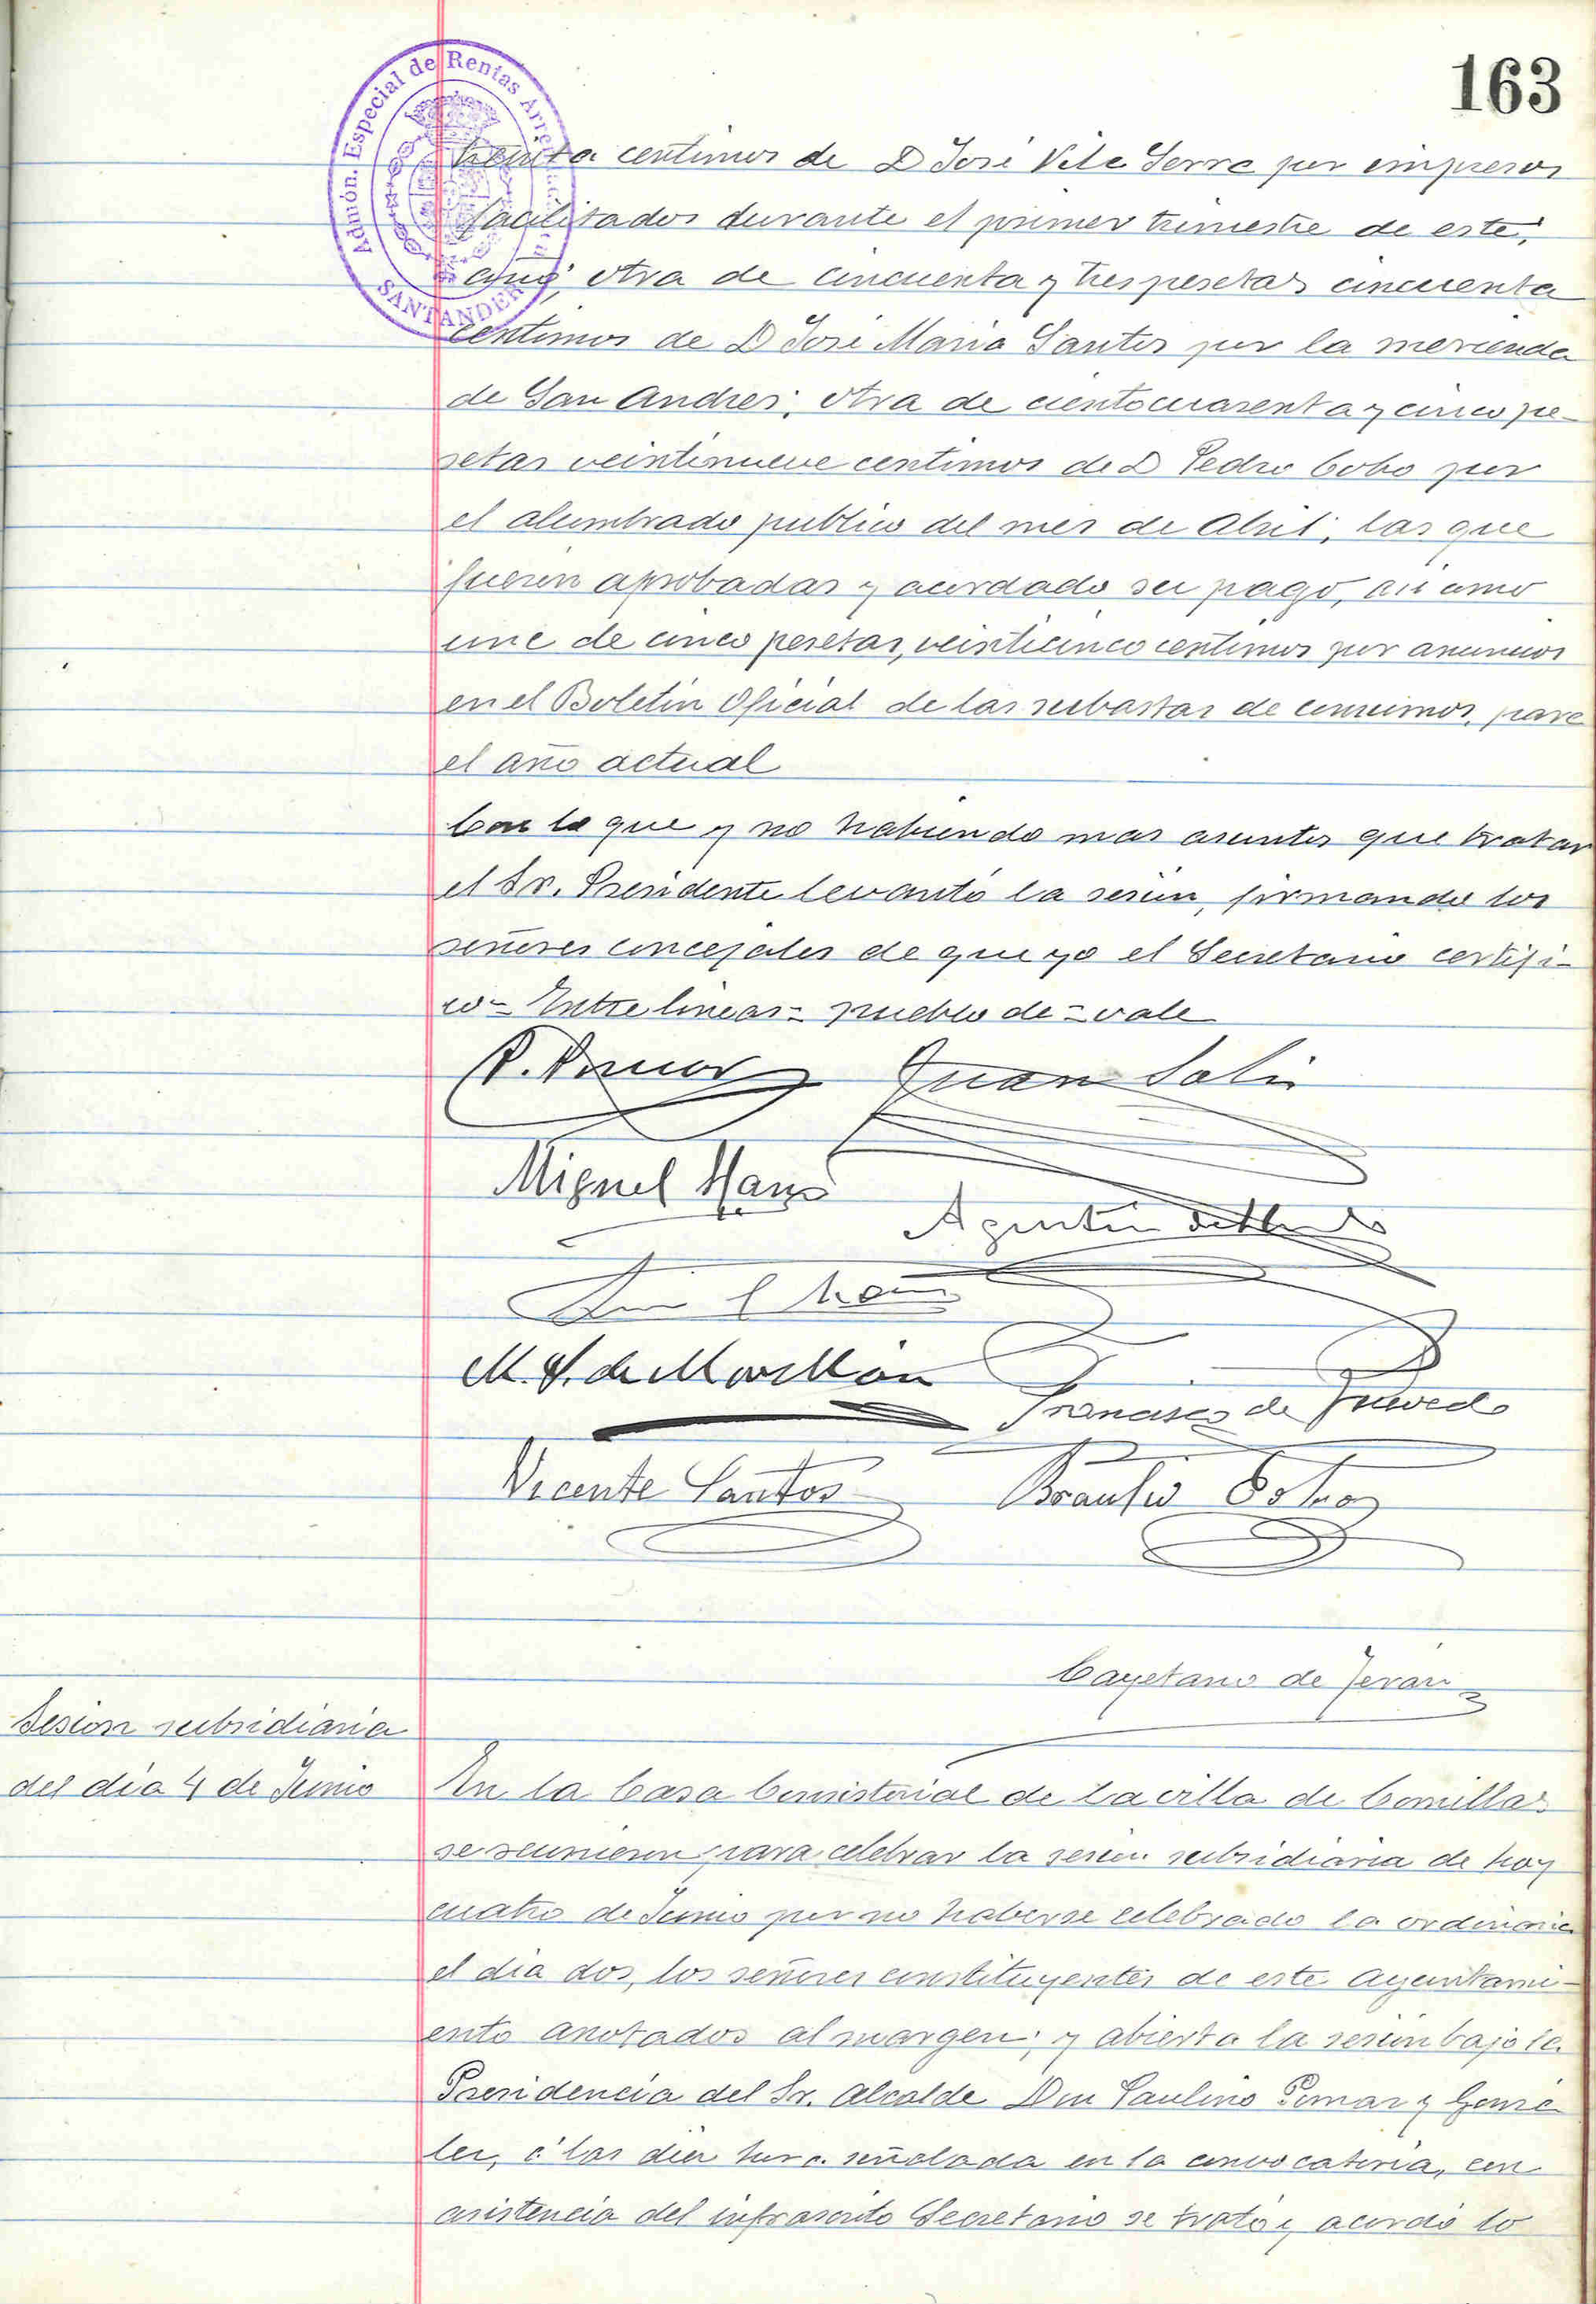 163
Admón. Especial de Rentas Arre
SANTANDER
treinta centimos de D José Vila Serra por impresos
facilitados durante el primer trimestre de este
año; otra de cincuenta y tres pesetas cincuenta
centimos de D José Maria Santos por la merienda
de San Andres; otra de cientocuarenta y cinco pe-
setas veintinueve centimos de D Pedro Cobo por
el alumbrado publico del mes de Abril; las que
fueron aprobadas y acordado su pago, asi como
una de cinco pesetas, veinticinco centimos por anuncios
en el Boletin Oficial de las subastas de consumos, para
el año actual
Con lo que y no habiendo mas asuntos que tratar
el Sr. Presidente levantó la sesion, firmando los
señores concejales de que yo el Secretario certifi-
co = Entre lineas = pueblo de = vale
P. Pomar Juan Solis
Miguel
Agustin
M. S. de Movellán
Francisco de Quevedo
Vicente Santos Braulio
Cayetano de Teran
Sesion subsidiaria
del dia 4 de Junio
En la Casa Consistorial de la villa de Comillas
se reunieron para celebrar la sesion subsidiaria de hoy
cuatro de Junio por no haberse celebrado la ordinaria
el dia dos, los señores constituyentes de este Ayuntami-
ento anotados al margen; y abierta la sesion bajo la
Presidencia del Sr. Alcalde Don Paulino Pomar y Gonza
lez, á las diez hora señalada en la convocatoria, con
asistencia del infrascrito Secretario se trató y acordó lo